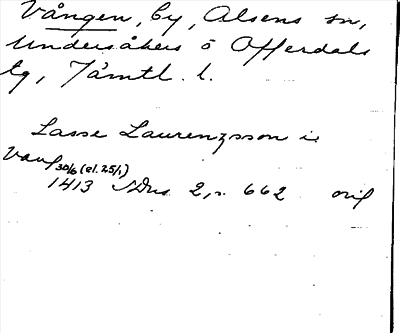 Vången, by, Alsens sn,
Undersåkers o Offerdals
tg, Jämtl. l.
Lasse Laurenzsson i
Vang
30/6 (el. 25/1)
1413 SDns 2, s. 662 orig